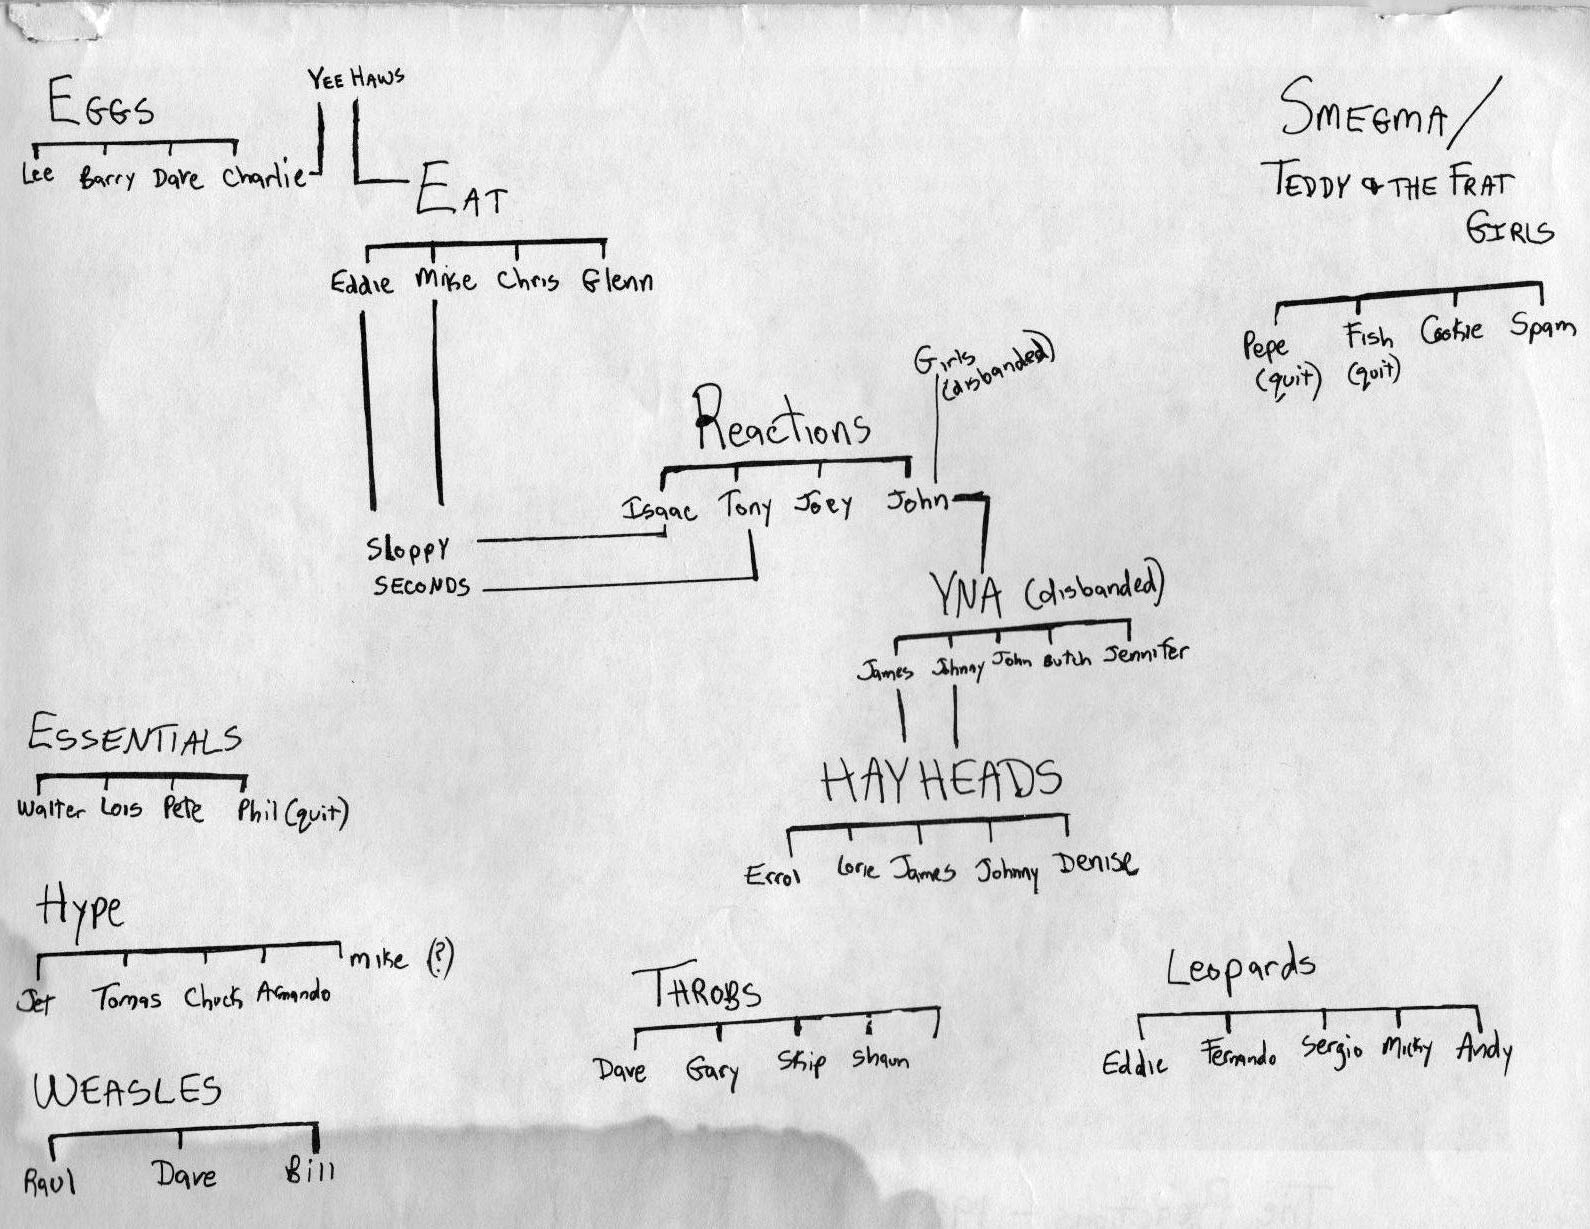 YEE HAWS
EGGS
Lee Barry Dave Charlie
EAT
Eddie Mike Chris Glenn
SMEGMA/
TEDDY & THE FRAT
GIRLS
Pepe Fish Cookie Spam
(quit) (quit)
Girls
(disbanded)
Reactions
Isaac Tony Joey John
Sloppy
SECONDS
YNA (disbanded)
James Johnny John Butch Jennifer
HAYHEADS
Errol Lorie James Johnny Denise
ESSENTIALS
Walter Lois Pete Phil (quit)
Hype
Jet Tomas Chuck Armando Mike (?)
THROBS
Dave Gary Skip Shaun
Leopards
Eddie Fernando Sergio Micky Andy
WEASLES
Raul Dave Bill